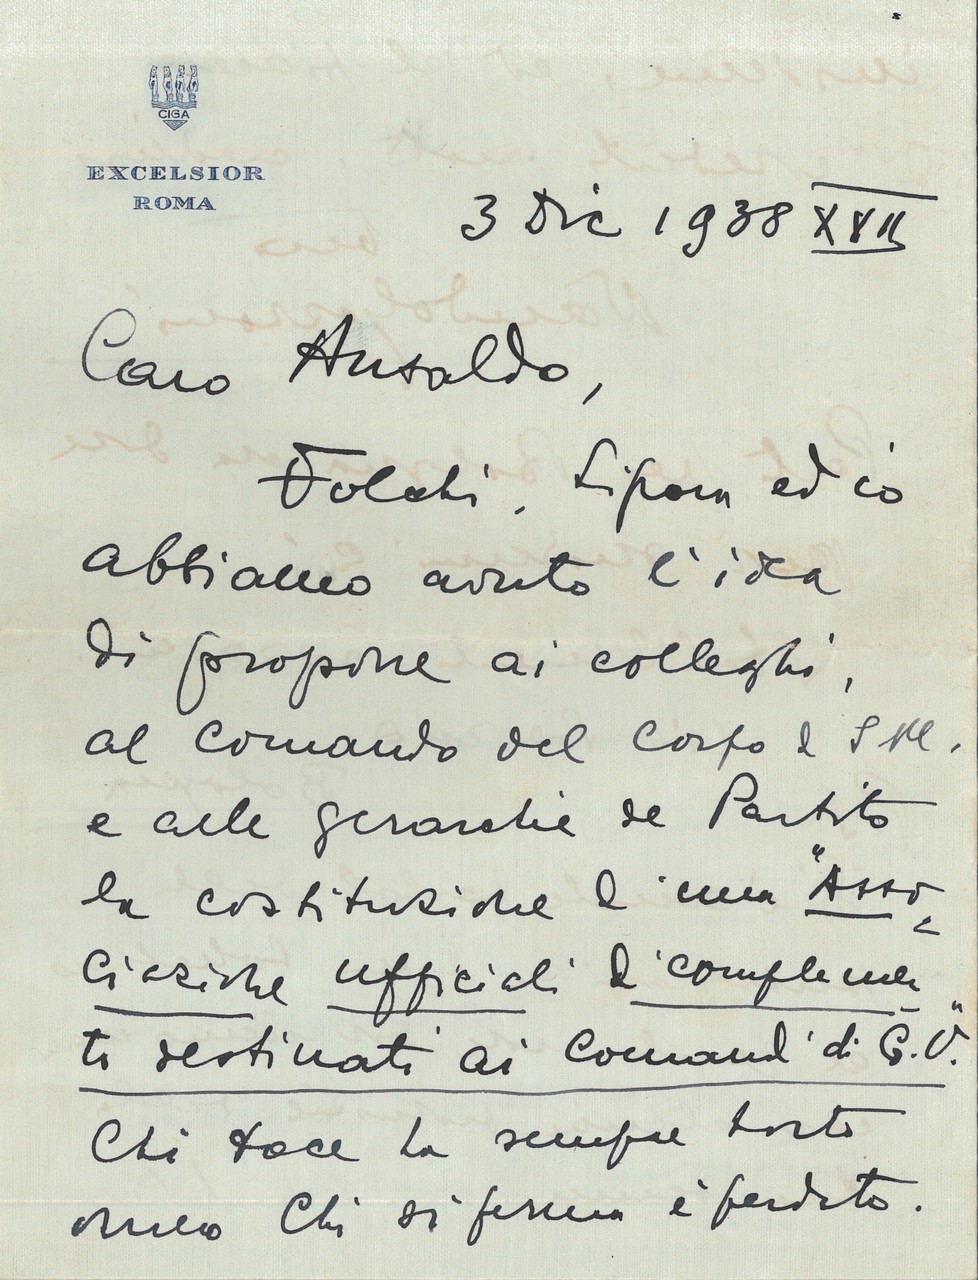 CIGA
EXCELSIOR
ROMA
3 Dic 1938 XVII
Caro Ansaldo,
Folchi, ed io
abbiamo avuto l'idea
di proporre ai colleghi,
al comando del Corpo di S M.
e alle gerarchie del Partito
la costituzione di una "Asso-
ciazione ufficiali di complemen
ti destinati ai comandi di G.U."
Chi tace ha sempre torto
ovvero Chi si ferma è perduto.